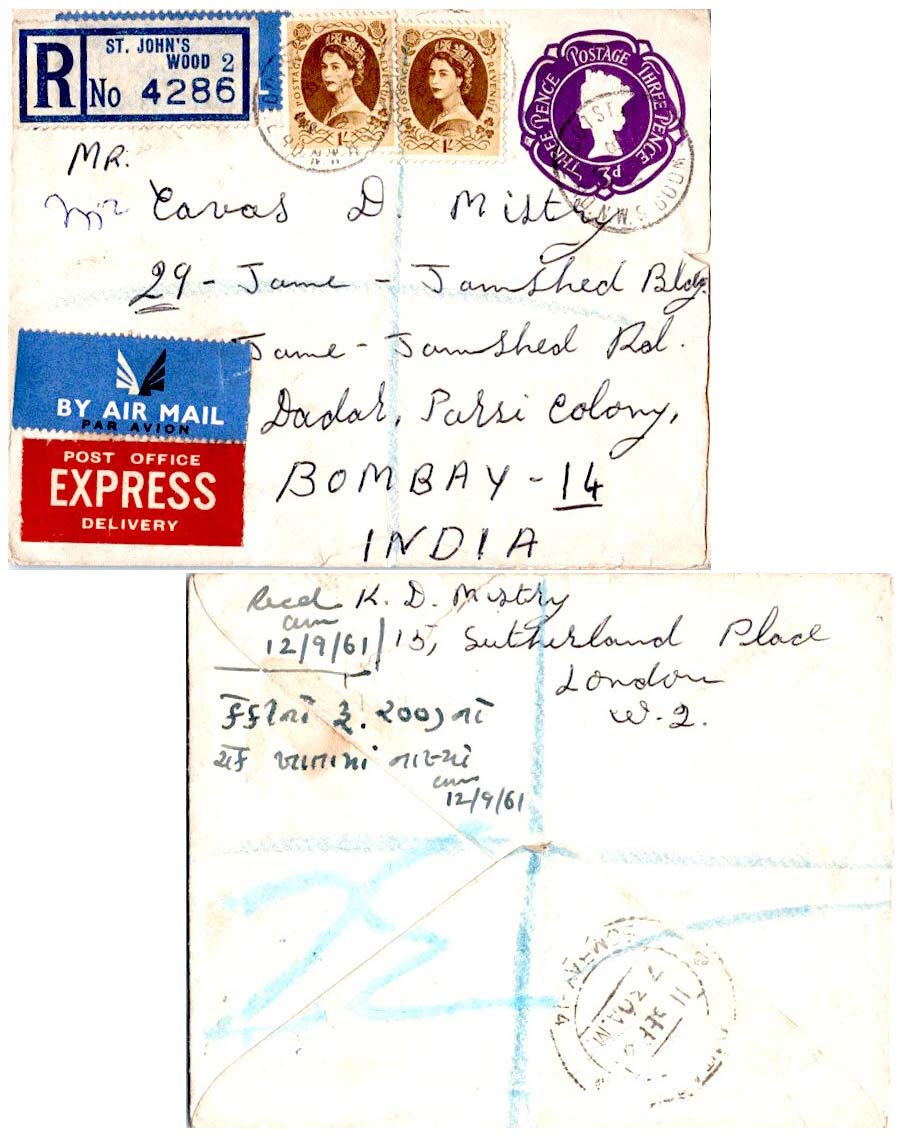 R
ST. JOHN'S
WOOD 2
No 4286
POSTAGE REVENUE
1/-
POSTAGE REVENUE
1/-
POSTAGE THREE PENCE
THREE PENCE
3d
MR.
Cavas D. Mistry
29 - Jame - Jamshed Bldg.
Jame - Jamshed Rd.
Dadar, Parsi Colony,
BOMBAY - 14
INDIA
BY AIR MAIL
PAR AVION
POST OFFICE
EXPRESS
DELIVERY
Recd K. D. Mistry
12/9/61 15, Sutherland Place
London
W. 2.
રૂ. ૨૦૦) નો
ચેક ખાતામાં નાખ્યો
12/9/61
BOMBAY-14
7 30 A.M.
11 SEP